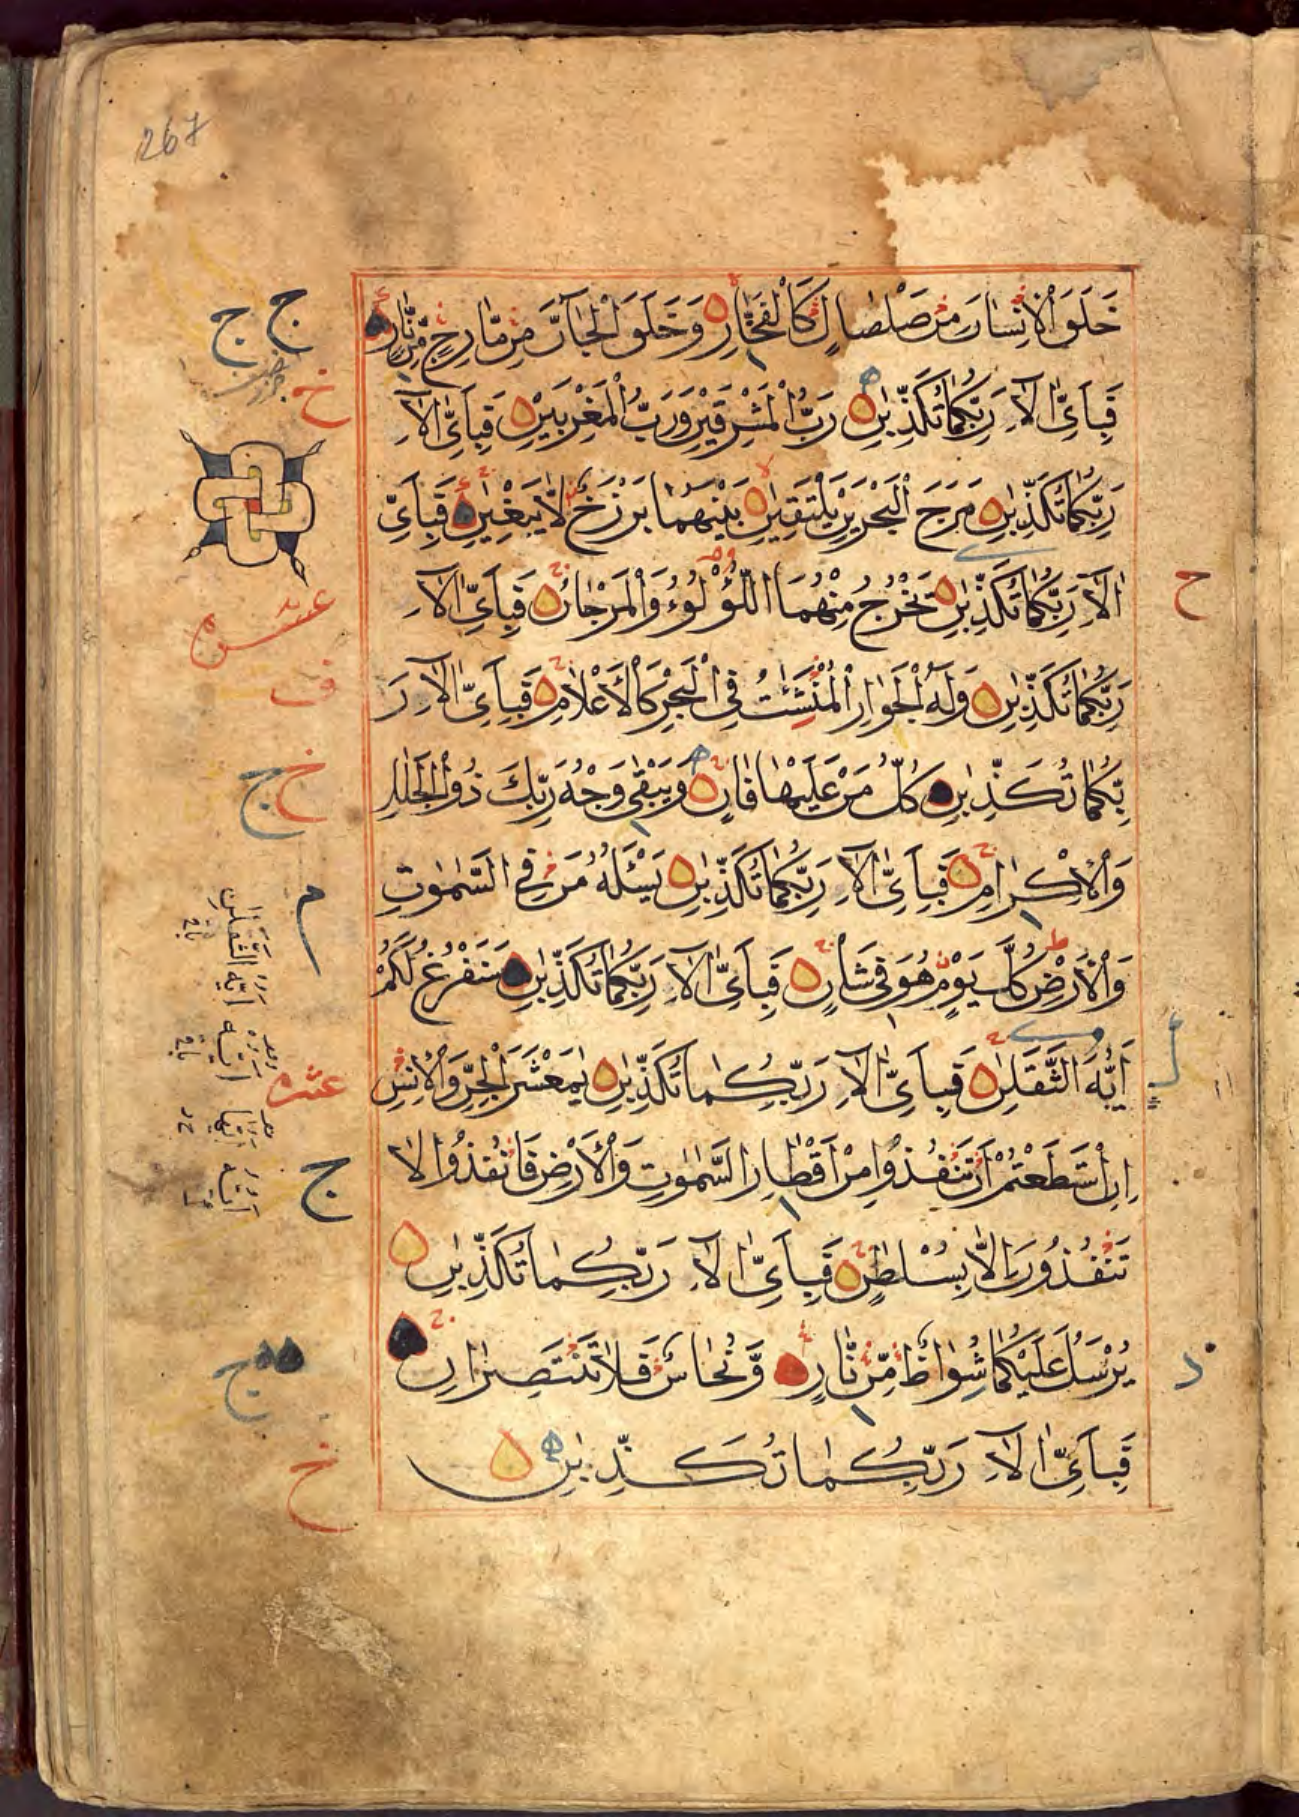 267
خَلَقَ الْاِنْسَانَ مِنْ صَلْصَالٍ كَالْفَخَّارِ وَخَلَقَ الْجَآنَّ مِنْ مَّارِجٍ مِّنْ نَّارٍ
فَبِاَىِّ اٰلَآءِ رَبِّكُمَا تُكَذِّبٰنِ رَبُّ الْمَشْرِقَيْنِ وَرَبُّ الْمَغْرِبَيْنِ فَبِاَىِّ اٰلَآءِ
رَبِّكُمَا تُكَذِّبٰنِ مَرَجَ الْبَحْرَيْنِ يَلْتَقِيٰنِ بَيْنَهُمَا بَرْزَخٌ لَّا يَبْغِيٰنِ فَبِاَىِّ
اٰلَآءِ رَبِّكُمَا تُكَذِّبٰنِ يَخْرُجُ مِنْهُمَا اللُّؤْلُوءُ وَالْمَرْجَانُ فَبِاَىِّ اٰلَآءِ
رَبِّكُمَا تُكَذِّبٰنِ وَلَهُ الْجَوَارِ الْمُنْشَئٰتُ فِى الْبَحْرِ كَالْاَعْلَامِ فَبِاَىِّ اٰلَآءِ رَ
بِّكُمَا تُكَذِّبٰنِ كُلُّ مَنْ عَلَيْهَا فَانٍ وَيَبْقٰى وَجْهُ رَبِّكَ ذُو الْجَلٰلِ
وَالْاِكْرَامِ فَبِاَىِّ اٰلَآءِ رَبِّكُمَا تُكَذِّبٰنِ يَسْئَلُهُ مَنْ فِى السَّمٰوٰتِ
وَالْاَرْضِ كُلَّ يَوْمٍ هُوَ فِى شَاْنٍ فَبِاَىِّ اٰلَآءِ رَبِّكُمَا تُكَذِّبٰنِ سَنَفْرُغُ لَكُمْ
اَيُّهَ الثَّقَلٰنِ فَبِاَىِّ اٰلَآءِ رَبِّكُمَا تُكَذِّبٰنِ يٰمَعْشَرَ الْجِنِّ وَالْاِنْسِ
اِنِ اسْتَطَعْتُمْ اَنْ تَنْفُذُوا مِنْ اَقْطَارِ السَّمٰوٰتِ وَالْاَرْضِ فَانْفُذُوا لَا
تَنْفُذُونَ اِلَّا بِسُلْطٰنٍ فَبِاَىِّ اٰلَآءِ رَبِّكُمَا تُكَذِّبٰنِ
يُرْسَلُ عَلَيْكُمَا شُوَاظٌ مِّنْ نَّارٍ وَّنُحَاسٌ فَلَا تَنْتَصِرَانِ
فَبِاَىِّ اٰلَآءِ رَبِّكُمَا تُكَذِّبٰنِ
ج ج
خ
ح
ف
خ ج
م
عشر
ج
خ